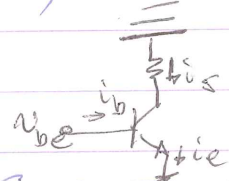 i_s
i_b
v_be
i_e